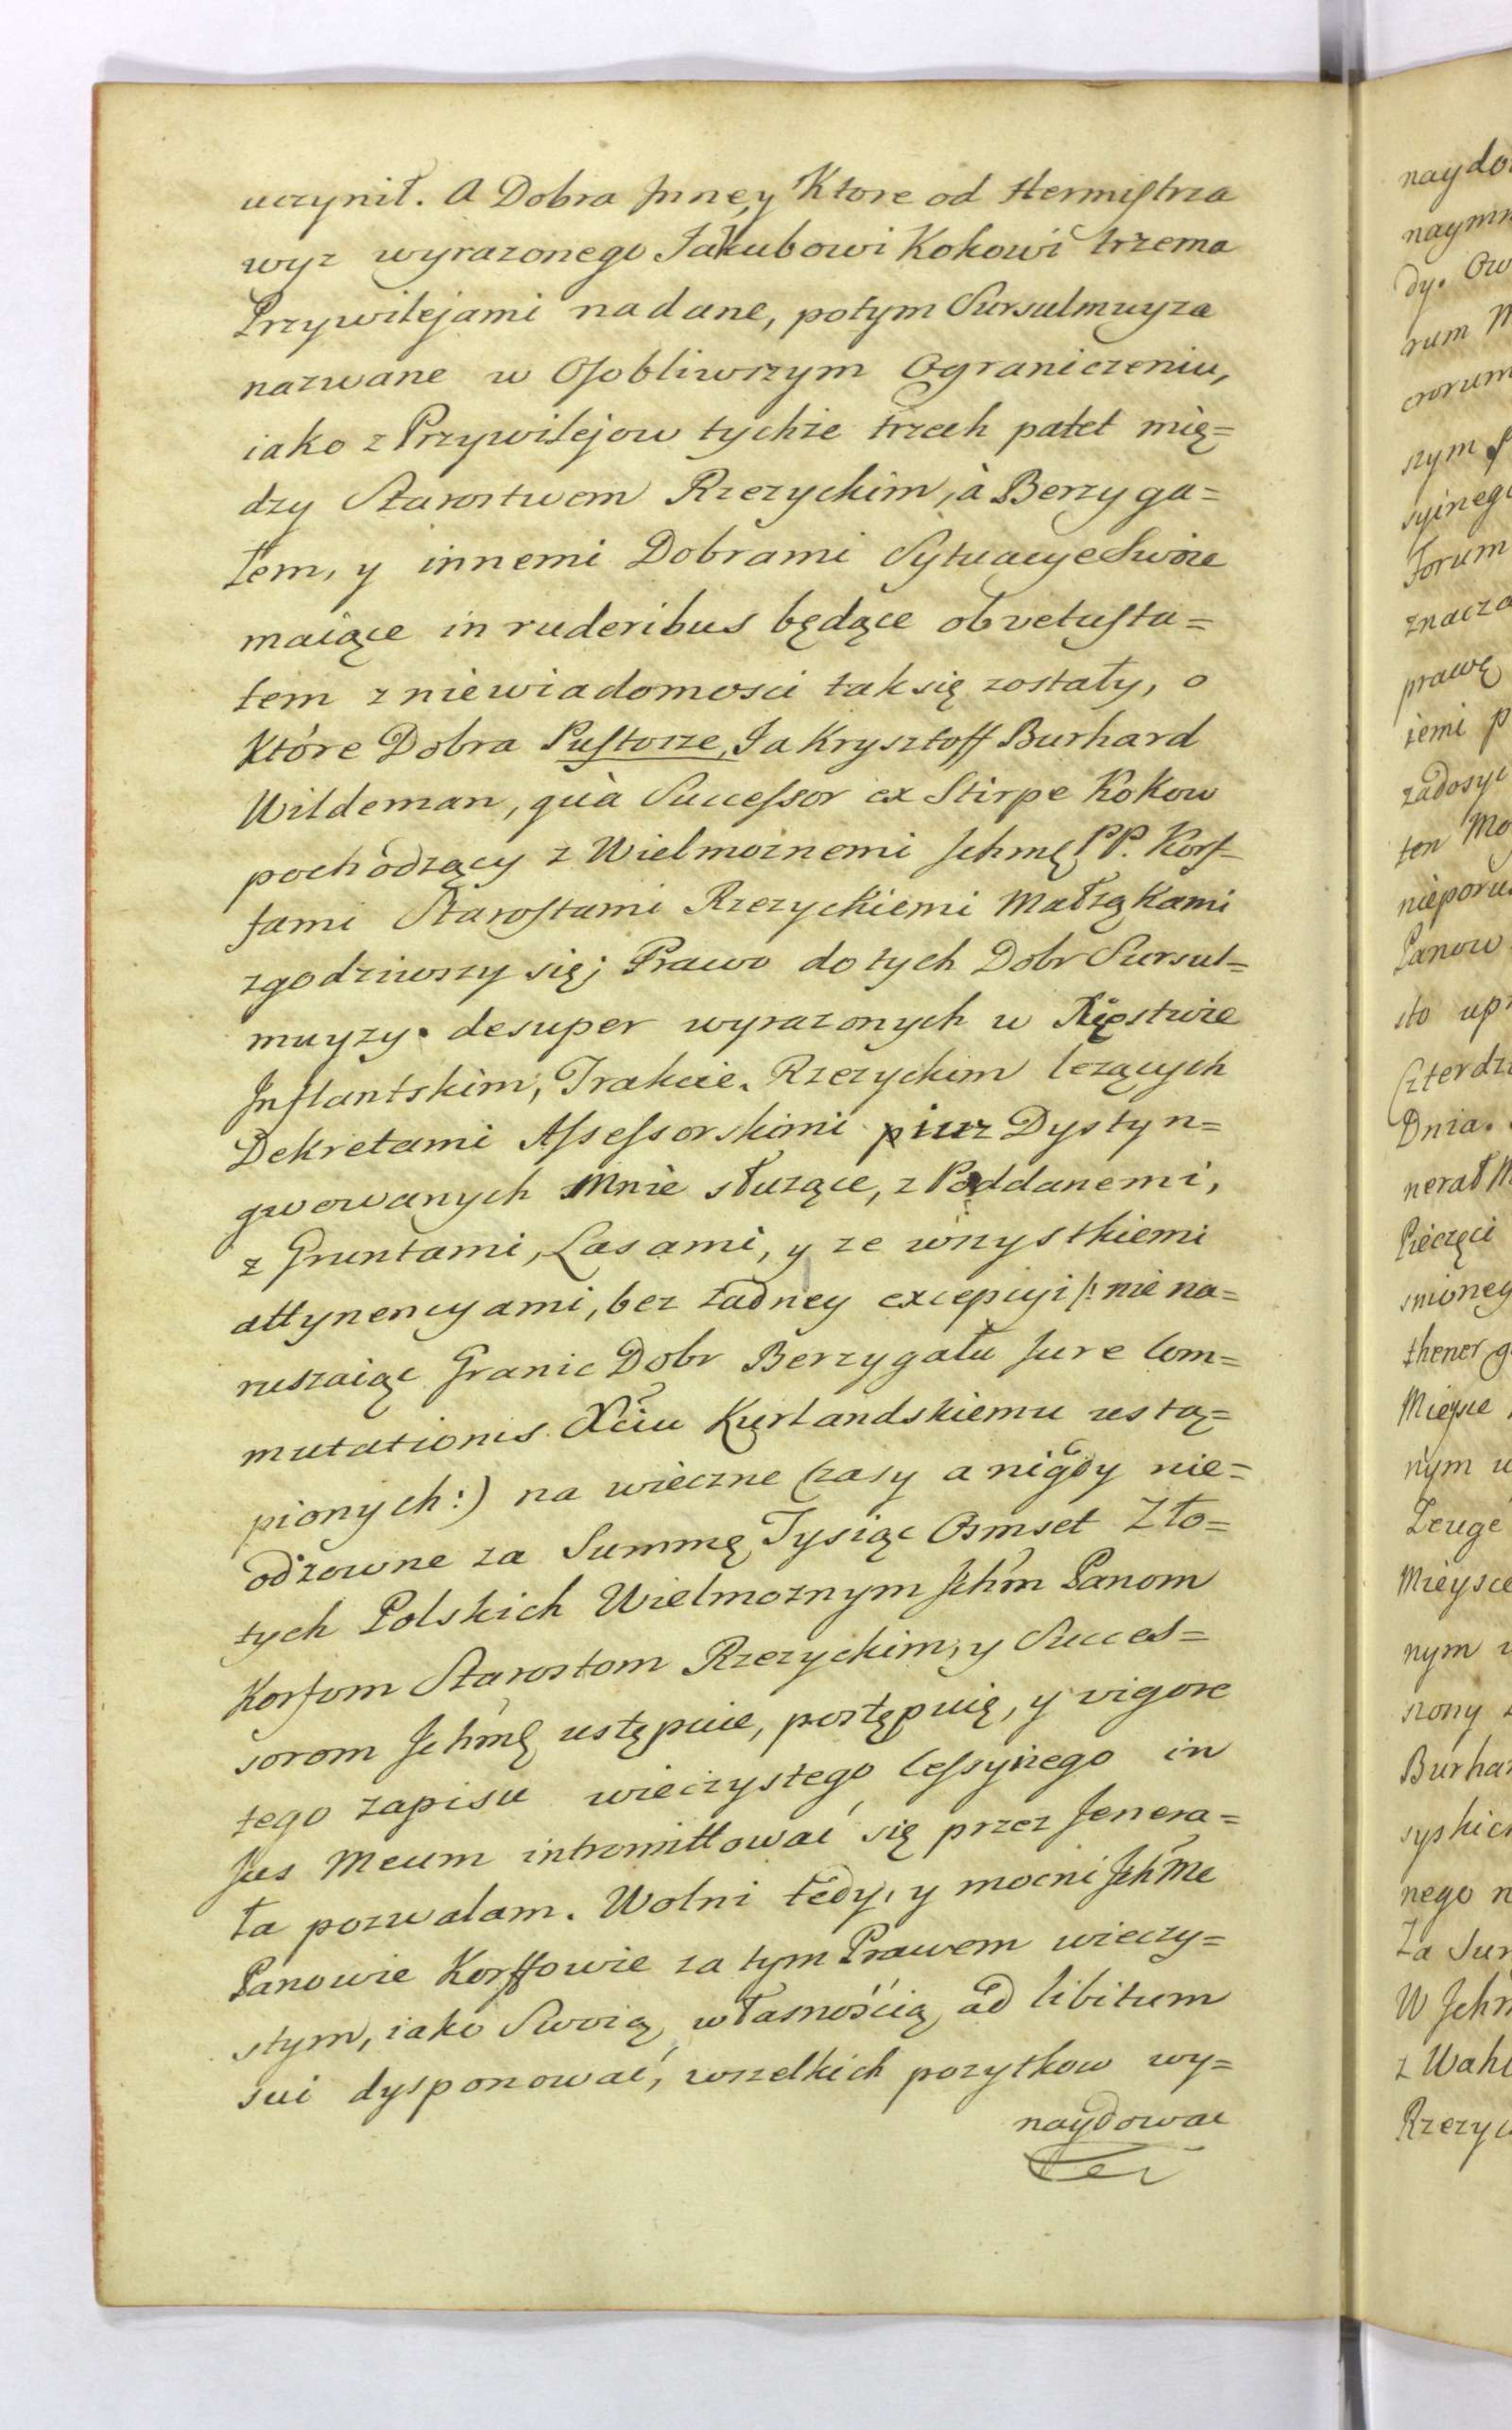 uczynił. A Dobra Inne, y Ktore od Hermistrza
wyz wyrazonego Jakubowi Kokowi trzema
Przywilejami nadane, potym Sursulmuyza
nazwane w Osobliwszym Ograniczeniu,
iako z Przywilejow tychze trzech patet mię=
dzy Starostwem Rzezyckim, à Berzyga=
łem, y innemi Dobrami Sytuacye Swoie
maiące in ruderibus będące ob vetusta=
tem z niewiadomosci tak się zostały, o
Które Dobra Pustosze, Ja Krysztoff Burhard
Wildeman, quà Successor ex Stirpe Kokow
pochodzący z Wielmoznemi Ichmę PP. Korf=
fami Starostami Rzezyckiemi Małzękami
zgodziwszy się; Prawo do tych Dobr Sursul=
muyzy. desuper wyrazonych w Xięstwie
Inflantskim, Trakcie. Rzezyckim lezących
Dekretami Assessorskimi piur Dystyn=
gwowanych Mnie słuzące, z Poddanemi,
z Gruntami, Lasami, y ze wszystkiemi
attynencyami, bez zadney excepcyi /: nie na=
ruszaiąc Granic Dobr Berzygału Jure Com=
mutationis Xciu Kurlandskiemu ustą=
pionych:) na wieczne Czasy a nigdy nie=
odzowne za Summę Tysiąc Osmset Zło=
tych Polskich Wielmoznym Ichm Panom
Korfom Starostom Rzezyckim, y Succes=
sorom Ichmę ustępuie, postępuię, y vigore
tego zapisu wieczystego Cessyinego in
Jus Meum intromittować się przez Jenera=
ła pozwalam. Wolni tedy, y mocni Ichme
Panowie Korffowie za tym Prawem wieczy=
stym, iako Swoią własnością ad libitum
sui dysponować, wszelkich pozytkow wy=
naydowac